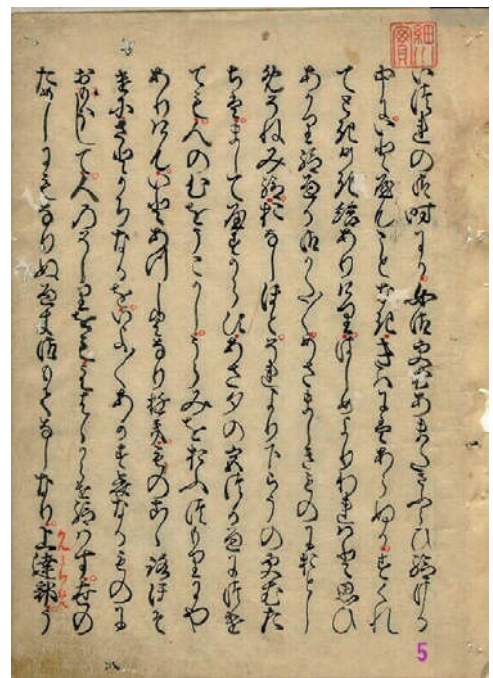 いつれの御時にか女御更衣あまたさふらひ給ける
中にいとやんことなききはにはあらぬかすくれ
てときめき給ありけりはしめよりわれはと思ひ
あかり給へる御かた〱めさましきものにおとし
めそねみ給おなしほとそれより下らうの更衣た
ちはましてやすからすあさ夕の宮つかへにつけ
ても人の心をうこかしうらみをおふつもりにや
ありけんいとあつしくなり行もの心ほそ
けにさとかちなるをいよ〱あかす哀なるものに
おもほして人のそしりをもえはゝからせ給はす世の
ためしにもなりぬへき御もてなしなり上達部う
5